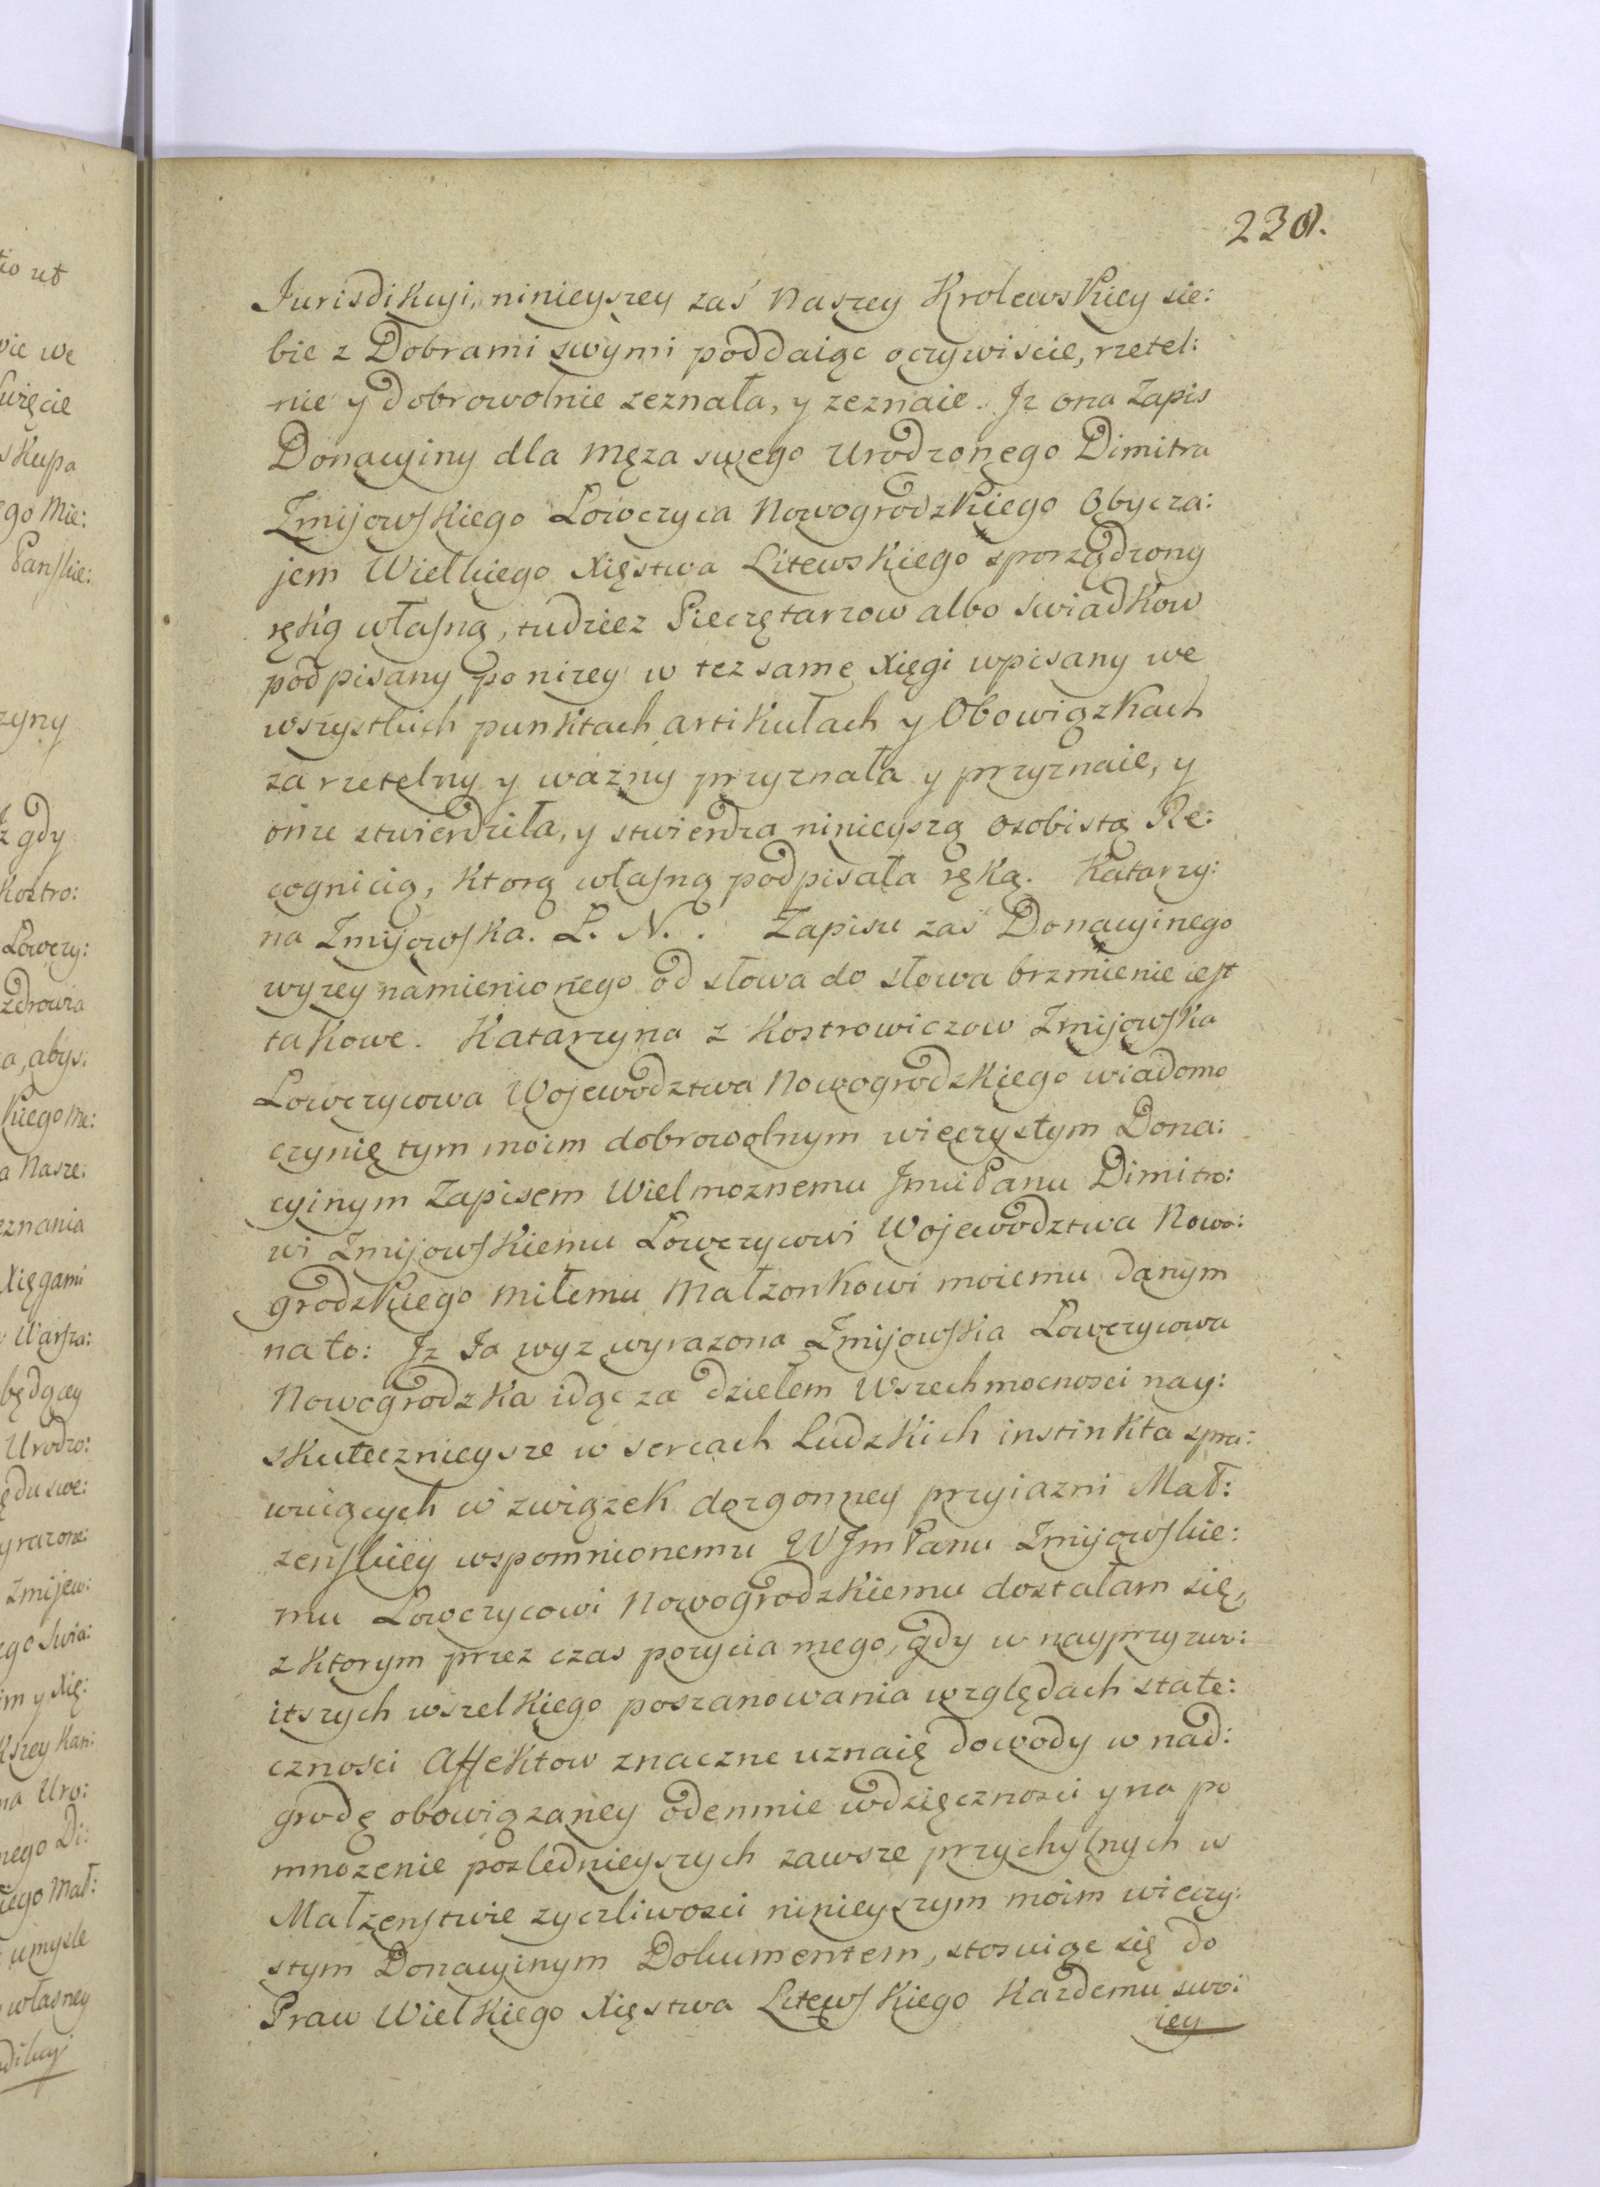 230.
Jurisdikcyi, ninieyszey zaś Naszey Krolewskiey sie:
bie z Dobrami swymi poddaiąc oczywiscie, rzetel:
nie y dobrowolnie zeznała, y zeznaie. Jz ona Zapis
Donacyiny dla Męza swego Urodzonego Dimitra
Zmijowskiego Łowczyca Nowogrodzkiego Obycza:
jem Wielkiego Xięstwa Litewskiego sporządzony
ręką własną, tudziez Pieczętarzow albo Swiadkow
podpisany ponizey w tez same Xięgi wpisany we
wszystkich punktach artikułach y Obowiązkach
za rzetelny y wazny przyznała y przyznaie, y
onu ztwierdziła, y stwierdza ninieyszą osobistą Re:
cognicią, ktorą własną podpisała ręką. Katarzy:
na Zmijowska. Ł. N. . Zapisu zaś Donacyinego
wyzey namienionego od słowa do słowa brzmienie iest
takowe. Katarzyna z Kostrowiczow Zmijowska
Łowczycowa Wojewodztwa Nowogrodzkiego wiadomo
czynię tym moim dobrowolnym wieczystym Dona:
cyinym Zapisem Wielmoznemu Jmći Panu Dimitro:
wi Zmijowskiemu Łowczycowi Wojewodztwa Nowo:
grodzkiego miłemu Małzonkowi moiemu danym
na to: Jz Ja wyz wyrazona Zmijowska Łowczycowa
Nowogrodzka idąc za dziełem Wszechmocnosci nay:
skutecznieysze w sercach Ludzkich instinkta spra:
wuiących w związek dozgonney przyiazni Mał:
zenskiey wspomnionemu WJm Panu Zmijowskie:
mu Łowczycowi Nowogrodzkiemu dostałam się,
z ktorym przez czas pozycia mego, gdy w nayprzyzwo:
itszych wszelkiego poszanowania względach state:
cznosci Affektow znaczne uznaię dowody w nad:
grodę obowiązaney odemnie wdzięcznosci y na po
mnozenie poslednieyszych zawsze przychylnych w
Małzenstwie zyczliwosci ninieyszym moim wieczy:
stym Donacyinym Dokumentem, stosuiąc się do
Praw Wielkiego Xięstwa Litewskiego kazdemu swo:
iey